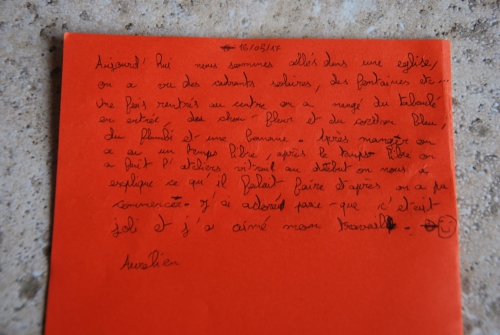 16/08/17
Aujourd'hui nous sommes allés dans une eglise,
on a vu des cadrants solaires, des fontaines etc...
Une fois rentrés au centre on a mangé du taboulé
en entrée, des chou-fleurs et du cordon bleu,
du fromage et une banane. Après manger on
a eu un temps libre, après le temps libre on
a fait l'ateliers vitrail au début on nous a
expliqué ce qu'il falait faire et après on a pu
commencer. J'ai adoré parc-que c'était
joli et j'ai aimé mon travail.
Aurelien